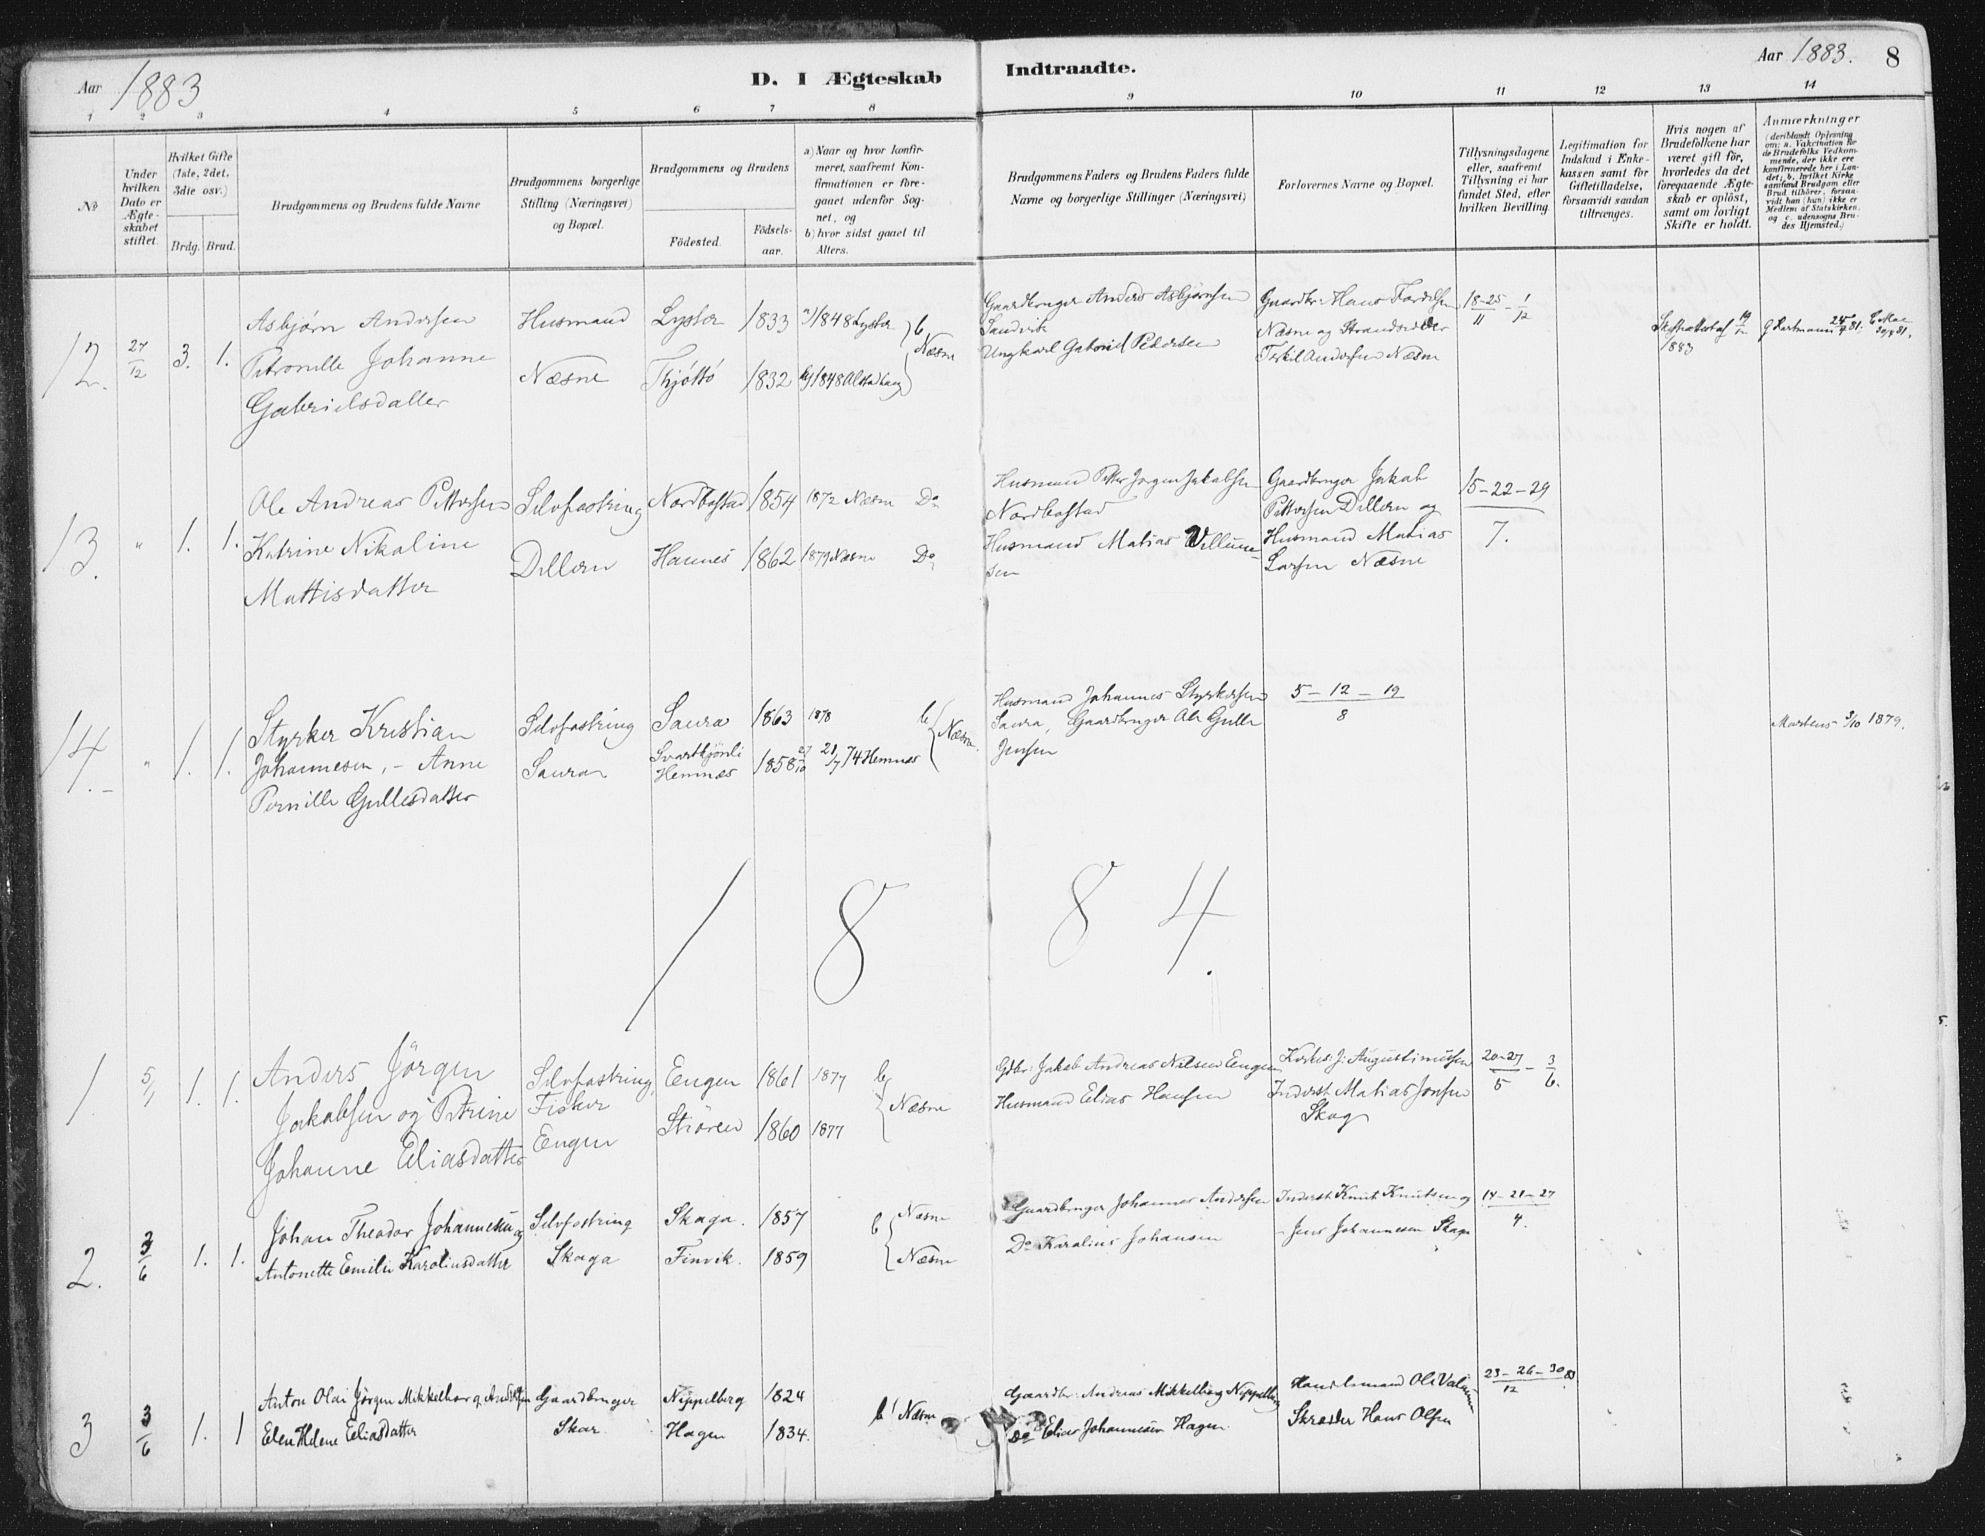 Aar 1883
D. I Ægteskab
Indtraadte.
Aar 1883. 8
1 2 3 4 5 6 7 8 9 10 11 12 13 14
No
Under hvilken Dato er Ægteskabet stiftet.
Hvilket Gifte (1ste, 2det, 3die osv.)
Brdg. Brud.
Brudgommens og Brudens fulde Navne
Brudgommens borgerlige Stilling (Næringsvei) og Bopæl.
Brudgommens og Brudens
Födested.
Födsels-aar.
a) Naar og hvor konfirmeret, saafremt Konfirmationen er foregaaet udenfor Sognet, og
b) hvor sidst gaaet til Alters.
Brudgommens Faders og Brudens Faders fulde
Navne og borgerlige Stillinger (Næringsvei)
Forlovernes Navne og Bopæl.
Tillysningsdagene eller, saafremt Tillysning ei har fundet Sted, efter hvilken Bevilling
Legitimation for Indskud i Enkekassen samt for Giftetilladelse, forsaavidt saadan tiltrænges.
Hvis nogen af Brudefolkene har været gift för, hvorledes da det foregaaende Ægteskab er oplöst, samt om lovligt Skifte er holdt.
Anmærkninger
(deriblandt Oplysning om: a. Vakcination for de Brudefolks Vedkommende, der ikke ere konfirmerede her i Landet; b. hvilket Kirkesamfund Brudgom eller Brud tilhörer, forsaavidt han (hun) ikke er Medlem af Statskirken, og c. udensogns Brudes Hjemsted.)
12. 27/12 3. 1.
Asbjørn Andersen
Petronille Johanne
Gabrielsdatter
Husmand
Næsne
Lyster 1833 a) 1848 Lyster
Thjøttø 1832 1848 Alstadhaug
b Næsne
Gaardbruger Anders Asbjørnsen
Sandvik
Ungkarl Gabriel Pedersen
Gaardbr: Hans
Næsne og Strandsidder
Terkil Andersen Næsne
18-25/11 - 1/12
Skifteattest af 19/12
1883
13. " 1. 1.
Ole Andreas Pettersen
Katrine Nikoline
Mattisdatter
Selvfostring
Dillern
Nordbostad 1854 1872 Næsne Do
Hannes 1862 1879 Næsne Do
Husmand Petter Jørgen Jakobsen
Nordbostad
Husmand Matias Villum-
sen
Gaardbruger Jakob
Pettersen Dillern og
Husmand Matias
Larsen Næsne
15-22-29
7.
14.- " 1. 1.
Styrker Kristian
Johannesen, - Anne
Pernille Gullesdatter
Selvfostring
Sauran
Saura 1863 1878
Svarttjönli
Hemnæs 1858 27/10 21/7 74 Hemnæs
b Næsne.
Husmand Johannes Styrkersen
Saura, Gaardbruger Ole Gulle
Jensen
5-12-19
8
Martens 3/10 1879.
1 8 8 4.
1. 5/1 1. 1.
Anders Jörgen
Jakobsen og Petrine
Johanne Eliasdatter
Selvfostring,
Fisker
Engen
Engen 1861 1877
Stiören 1860 1877
b Næsne
Gdbr: Jakob Andreas Nilsen Engen
Husmand Elias Hansen
Kirkes: J: Augustinussen
Inderst Matias Jonsen
Skog
20-27/5 - 3/6.
2. 3/6 1. 1.
Johan Theodor Johannesen og
Antonette Emilie Karoliusdatter
Selvfostring
Skaga
Skaga. 1857
Finvik. 1859
b Næsne
Næsne
Gaardbruger Johannes Andersen
Do Karolius Johansen
Inderst Knut Knutsen og
- Jens Johannesen Skaga
14-21-27
4.
3 3/6 1. 1
Anton Olai Jörgen Mikkelborg Andersen
Elen Helene Eliasdatter
Gaardbruger
Skar
Nippelberg 1824
Hagen 1834.
b Næsne
Gaardbr: Andreas Mikkelborg Nippelberg
Do Elias Johannesen Hagen
Handelsmand Ole
Skræder Hans Olsen
23-26-30
12